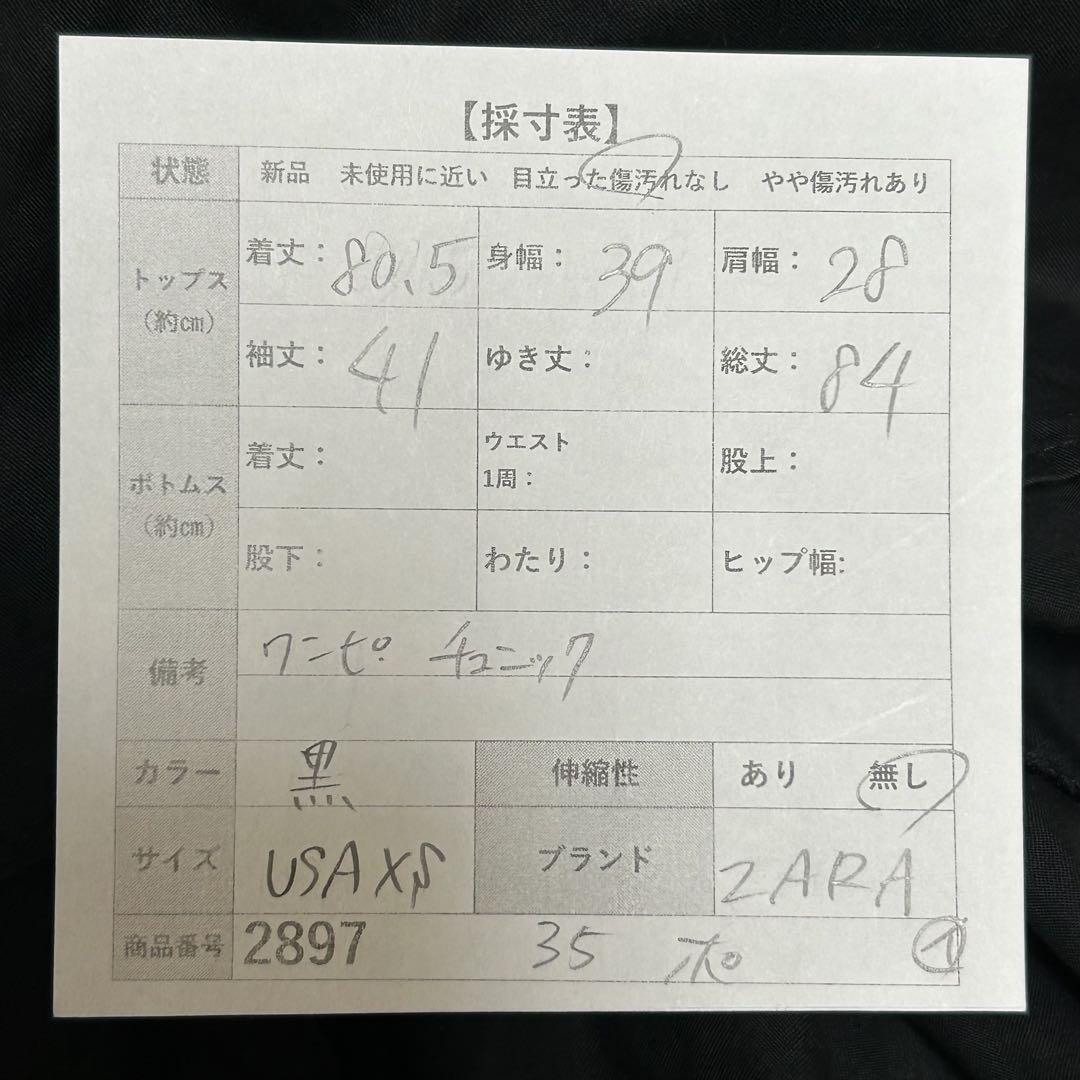 【採寸表】
状態 新品 未使用に近い 目立った傷汚れなし やや傷汚れあり
トップス（約cm） 着丈：80.5 身幅：39 肩幅：28
袖丈：41 ゆき丈： 総丈：84
ボトムス（約cm） 着丈： ウエスト1周： 股上：
股下： わたり： ヒップ幅:
備考 ワンピ チュニック
カラー 黒 伸縮性 あり 無し
サイズ USA XS ブランド ZARA
商品番号 2897 35 ポ